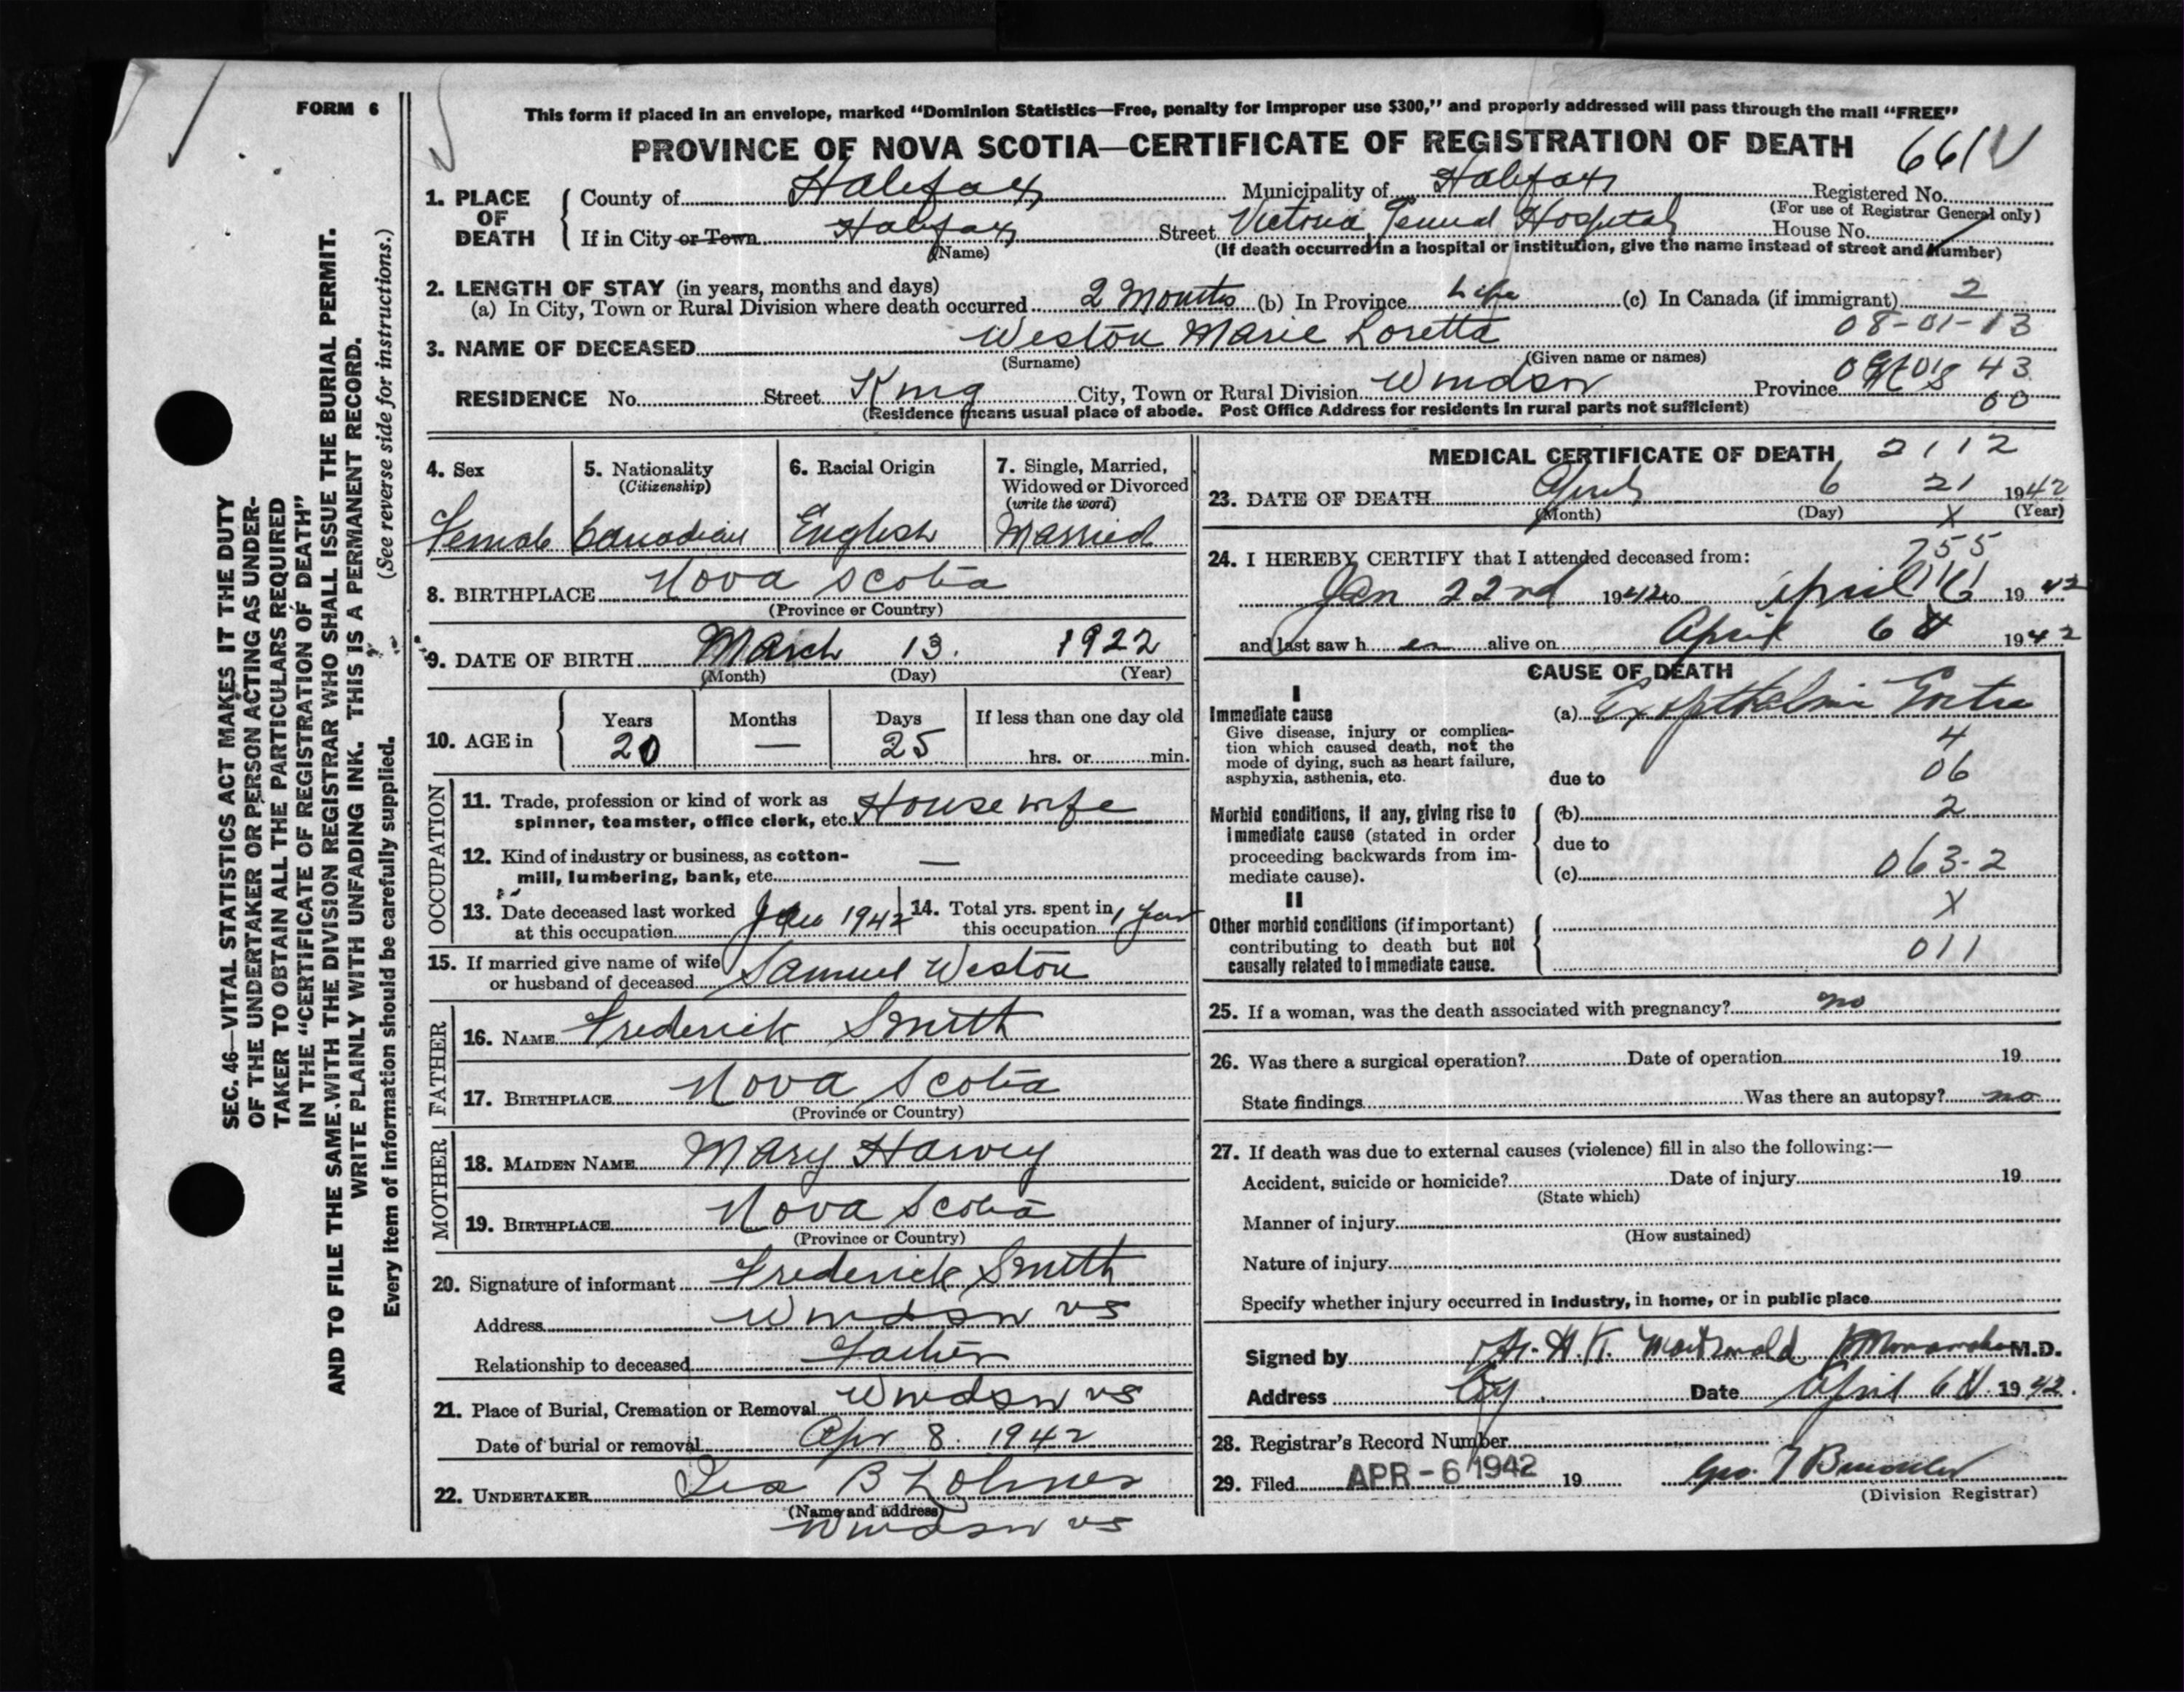 FORM 6
This form if placed in an envelope, marked “Dominion Statistics—Free, penalty for improper use $300,” and properly addressed will pass through the mail “FREE”
PROVINCE OF NOVA SCOTIA—CERTIFICATE OF REGISTRATION OF DEATH 661
1. PLACE OF DEATH
County of Halifax Municipality of Halifax Registered No.
(For use of Registrar General only)
If in City or Town Halifax Street Victoria General Hospital House No.
(Name) (If death occurred in a hospital or institution, give the name instead of street and number)
2. LENGTH OF STAY (in years, months and days)
(a) In City, Town or Rural Division where death occurred 2 Months (b) In Province Life (c) In Canada (if immigrant) 2
08-01-13
3. NAME OF DECEASED Weston Marie Loretta
(Surname) (Given name or names)
RESIDENCE No. Street King City, Town or Rural Division Windsor Province 43
(Residence means usual place of abode. Post Office Address for residents in rural parts not sufficient) 00
SEC. 46—VITAL STATISTICS ACT MAKES IT THE DUTY
OF THE UNDERTAKER OR PERSON ACTING AS UNDER-
TAKER TO OBTAIN ALL THE PARTICULARS REQUIRED
IN THE “CERTIFICATE OF REGISTRATION OF DEATH”
AND TO FILE THE SAME WITH THE DIVISION REGISTRAR WHO SHALL ISSUE THE BURIAL PERMIT.
WRITE PLAINLY WITH UNFADING INK. THIS IS A PERMANENT RECORD.
Every item of information should be carefully supplied. (See reverse side for instructions.)
4. Sex
Female
5. Nationality
(Citizenship)
Canadian
6. Racial Origin
English
7. Single, Married,
Widowed or Divorced
(write the word)
Married
8. BIRTHPLACE Nova Scotia
(Province or Country)
9. DATE OF BIRTH March 13. 1922
(Month) (Day) (Year)
10. AGE in
Years Months Days If less than one day old
20 — 25 hrs. or min.
OCCUPATION
11. Trade, profession or kind of work as
spinner, teamster, office clerk, etc. Housewife
12. Kind of industry or business, as cotton-
mill, lumbering, bank, etc. —
13. Date deceased last worked
at this occupation 1942
14. Total yrs. spent in
this occupation 1 year
15. If married give name of wife
or husband of deceased Samuel Weston
FATHER
16. NAME Frederick Smith
17. BIRTHPLACE Nova Scotia
(Province or Country)
MOTHER
18. MAIDEN NAME Mary Harvey
19. BIRTHPLACE Nova Scotia
(Province or Country)
20. Signature of informant Frederick Smith
Address Windsor NS
Relationship to deceased Father
21. Place of Burial, Cremation or Removal Windsor NS
Date of burial or removal Apr 8. 1942
22. UNDERTAKER Geo B Lohnes
(Name and address)
Windsor NS
MEDICAL CERTIFICATE OF DEATH 2112
23. DATE OF DEATH April 6 21 1942
(Month) (Day) X (Year)
24. I HEREBY CERTIFY that I attended deceased from: 755
Jan 22nd 1942 to April 6 1942
and last saw h er alive on April 6 1942
CAUSE OF DEATH
I
Immediate cause
Give disease, injury or complica-
tion which caused death, not the
mode of dying, such as heart failure,
asphyxia, asthenia, etc.
(a) Exopthalmic Goitre
4
due to 06
Morbid conditions, if any, giving rise to
immediate cause (stated in order
proceeding backwards from im-
mediate cause).
(b) 2
due to
(c) 063-2
II
X
Other morbid conditions (if important)
contributing to death but not
causally related to immediate cause.
011
25. If a woman, was the death associated with pregnancy? no
26. Was there a surgical operation? Date of operation 19
State findings Was there an autopsy? no
27. If death was due to external causes (violence) fill in also the following:—
Accident, suicide or homicide? Date of injury 19
(State which)
Manner of injury
(How sustained)
Nature of injury
Specify whether injury occurred in industry, in home, or in public place
Signed by H. K. MacDonald M.D.
Address City. Date April 6 1942.
28. Registrar's Record Number
29. Filed APR - 6 1942 19 Geo.
(Division Registrar)